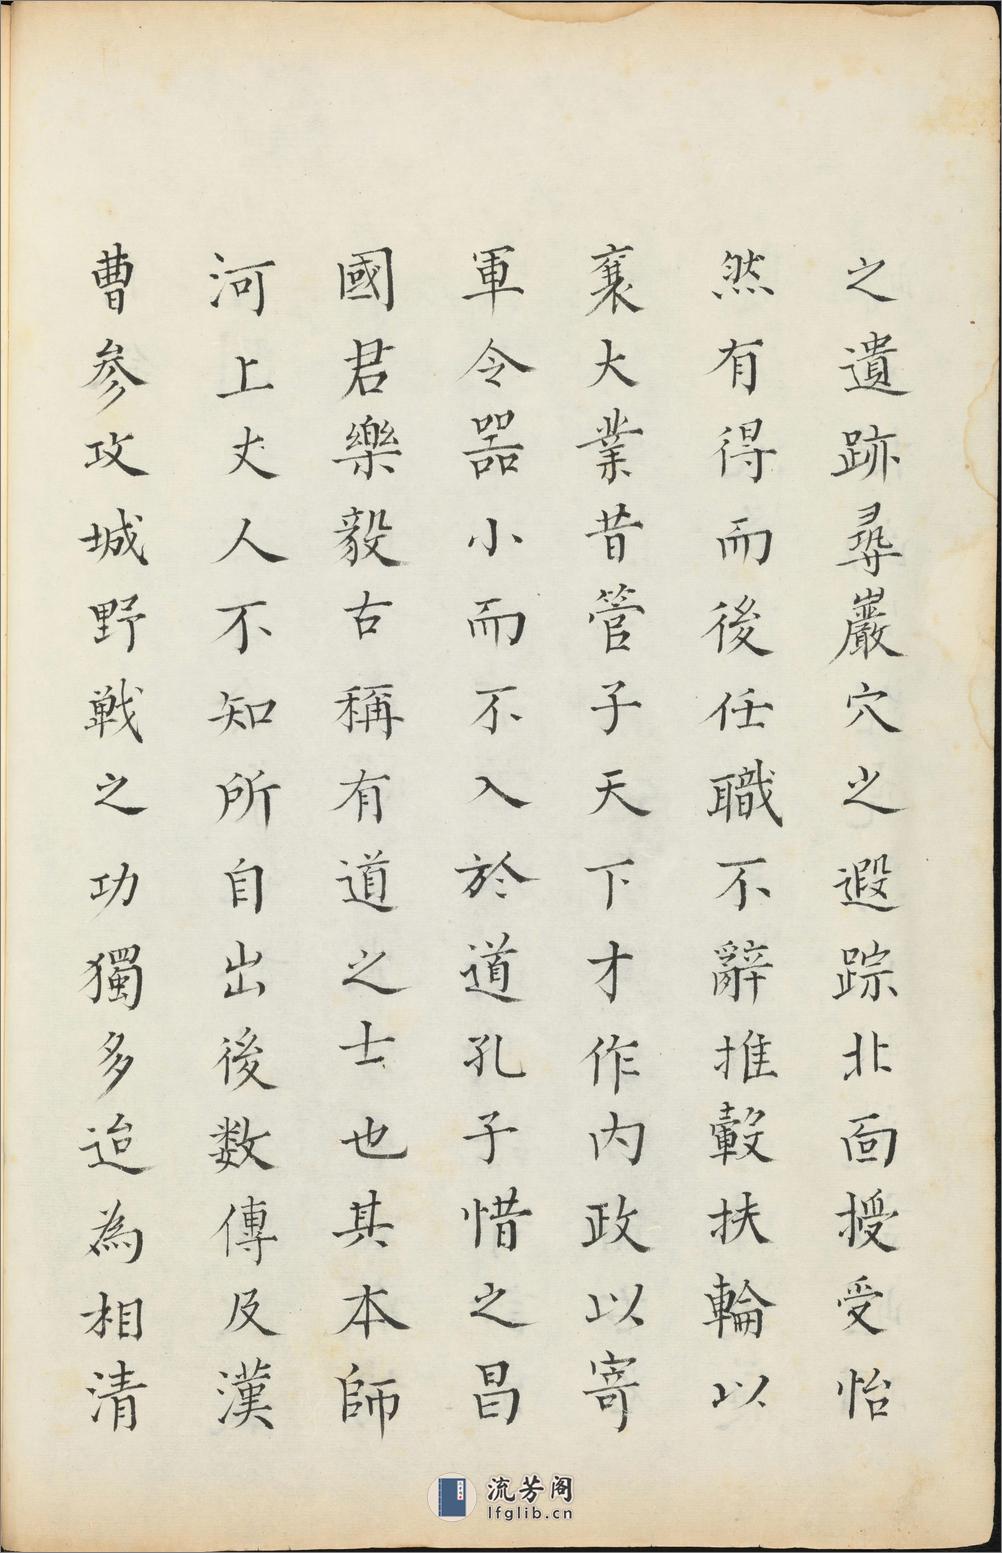 之遺跡尋巖穴之遐踪北面授受怡
然有得而後任職不辭推轂扶輪以
襄大業昔管子天下才作内政以寄
軍令器小而不入於道孔子惜之昌
國君樂毅古稱有道之士也其本師
河上丈人不知所自出後数傳及漢
曹参攻城野戰之功獨多迨為相清
流芳阁
lfglib.cn